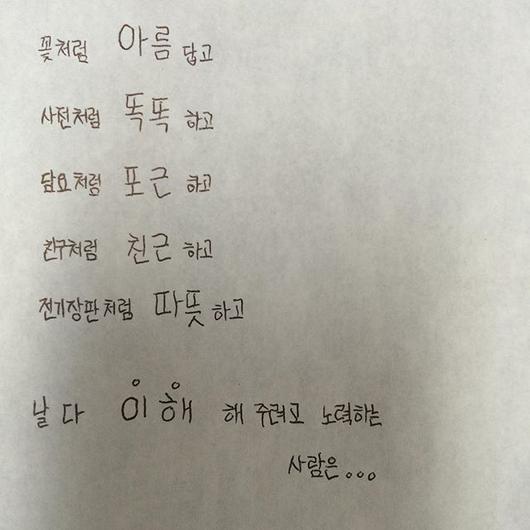 꽃처럼 아름 답고
사전처럼 똑똑 하고
담요처럼 포근 하고
친구처럼 친근 하고
전기장판처럼 따뜻 하고
날 다 이해 해 주려고 노력하는
사람은...